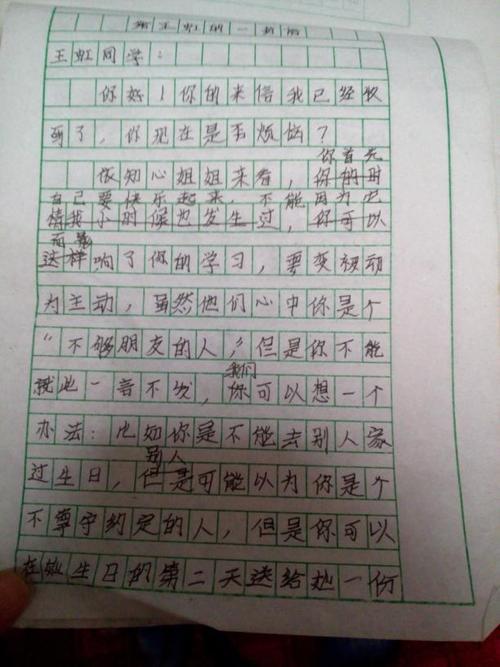 给王虹的一封信
王虹同学:
你好!你的来信我已经收
到了,你现在是否烦恼?
你首先
做知心姐姐来看,你的时
自己要快乐起来,不能因为它
情我小时候也发生过,你可以
而影
这样响了你的学习,要变被动
为主动,虽然他们心中你是个
“不够朋友的人”,但是你不能
我们
就此一言不发,你可以想一个
办法:比如你是不能去别人家
别人
过生日,但是可能以为你是个
不尊守约定的人,但是你可以
在她生日的第二天送给她一份